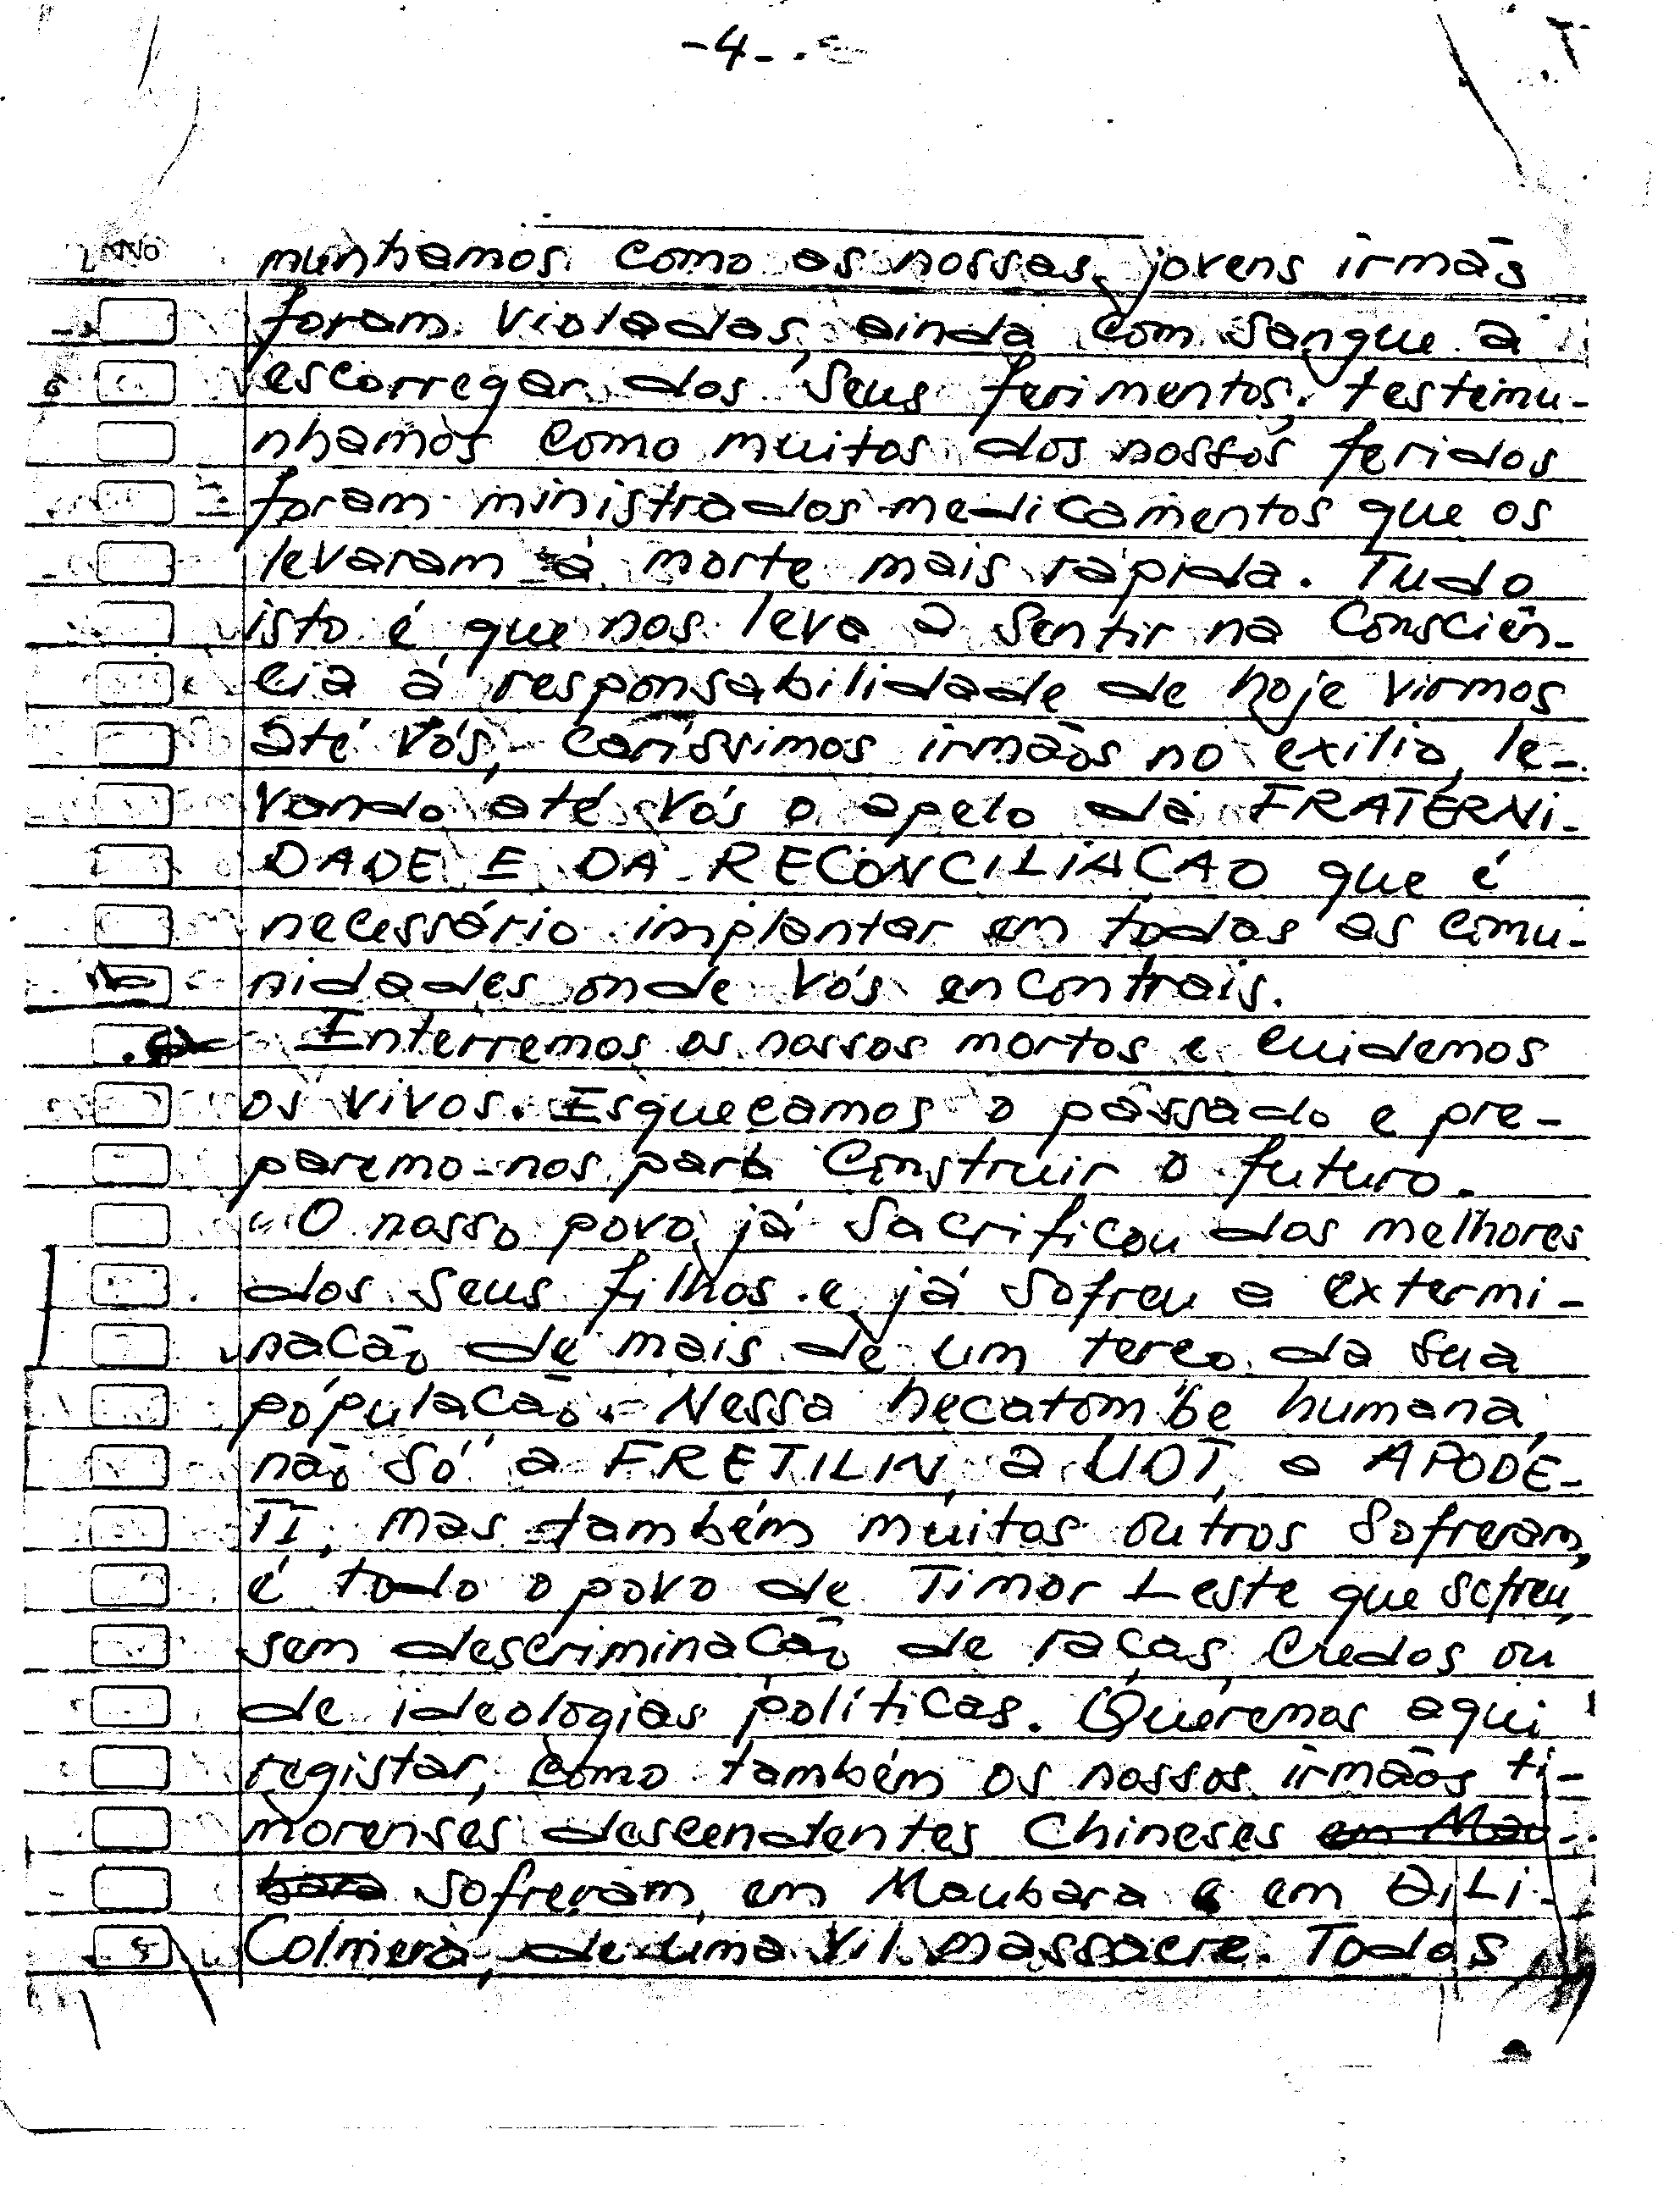 -4-
No
munhamos como as nossas jovens irmãs
foram violadas, ainda com sangue a
escorregar dos seus ferimentos; testemu-
nhamos como muitos dos nossos feridos
foram ministrados medicamentos que os
levaram à morte mais rápida. Tudo
isto é que nos leva a sentir na consciên-
cia a responsabilidade de hoje virmos
até vós, caríssimos irmãos no exílio, le-
vando até vós o apelo da FRATERNI-
DADE E DA RECONCILIACAO que é
necessário implantar em todas as comu-
nidades onde vós encontrais.
Enterremos os nossos mortos e cuidemos
os vivos. Esqueçamos o passado e pre-
paremo-nos para construir o futuro.
O nosso povo já sacrificou dos melhores
dos seus filhos e já sofreu a extermi-
nação de mais de um terço da sua
população. Nessa hecatombe humana,
não só a FRETILIN, a UDT, a APODE-
TI, mas também muitos outros sofreram,
é todo o povo de Timor Leste que sofreu,
sem descriminação de raças, credos ou
de ideologias políticas. Queremos aqui
registar, como também os nossos irmãos ti-
morenses descendentes chineses em Mau-
bara sofreram, em Maubara e em DiLi-
Colmera, de uma vil massacre. Todos